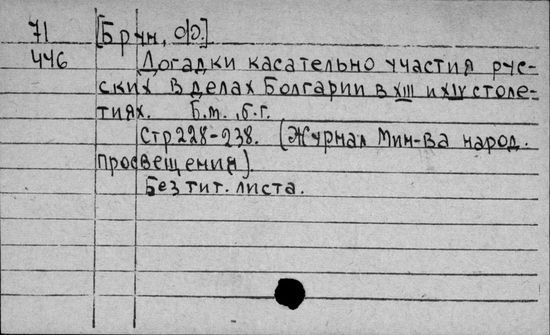 71 [Брун, Ф.]
446 Догадки касательно участия рус-
ских в делах Болгарии в XIII и XIV столе-
тиях. Б.м., б.г.
Стр 228-238. (Журнал Мин-ва народ.
просвещения).
Без тит. листа.